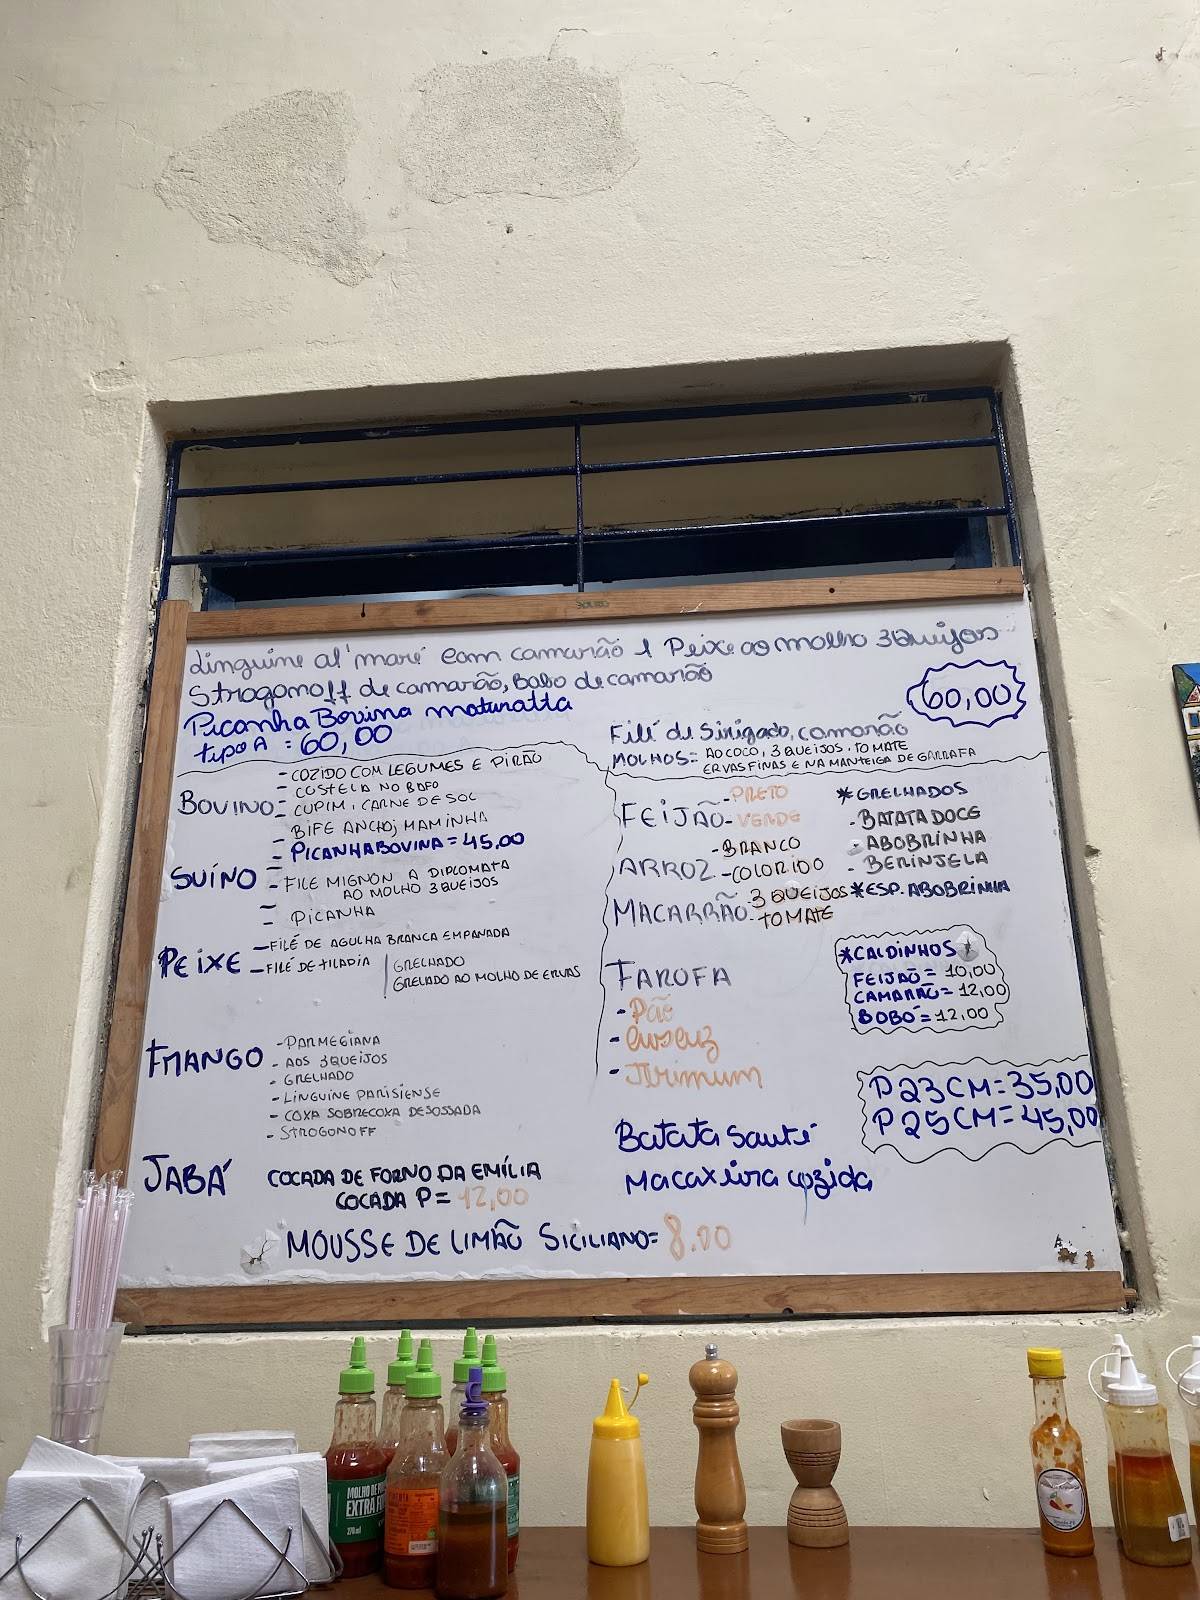 Linguine al' maré com camarão / Peixe ao molho 3 Queijos
Strogonoff de camarão, Bobo de camarão
60,00
Picanha Bovina maturatta
tipo A = 60,00
Filé de Sirigado, camarão
MOLHOS = AO COCO, 3 QUEIJOS, TOMATE
ERVAS FINAS E NA MANTEIGA DE GARRAFA
BOVINO
- COZIDO COM LEGUMES E PIRÃO
- COSTELA NO BAFO
- CUPIM, CARNE DE SOL
- BIFE ANCHO; MAMINHA
- PICANHA BOVINA = 45,00
SUÍNO
- FILE MIGNON A DIPLOMATA
AO MOLHO 3 QUEIJOS
- PICANHA
PEIXE
- FILÉ DE AGULHA BRANCA EMPANADA
- FILÉ DE TILAPIA
GRELHADO
GRELADO AO MOLHO DE ERVAS
FRANGO
- PARMEGIANA
- AOS 3 QUEIJOS
- GRELHADO
- LINGUINE PARISIENSE
- COXA SOBRECOXA DESOSSADA
- STROGONOFF
JABÁ
FEIJÃO
- PRETO
- VERDE
ARROZ
- BRANCO
- COLORIDO
MACARRÃO
- 3 QUEIJOS
TOMATE
* GRELHADOS
- BATATA DOCE
- ABOBRINHA
- BERINJELA
* ESP. ABOBRINHA
FAROFA
- Pão
- cuscuz
- Jirimum
* CALDINHOS
FEIJAO = 10,00
CAMARAO = 12,00
BOBÓ = 12,00
P 23 CM = 35,00
P 25 CM = 45,00
Batata Sauté
Macaxeira cozida
COCADA DE FORNO DA EMÍLIA
COCADA P = 12,00
MOUSSE DE LIMÃO SICILIANO = 8.00
MOLHO DE
EXTRA
270 ml